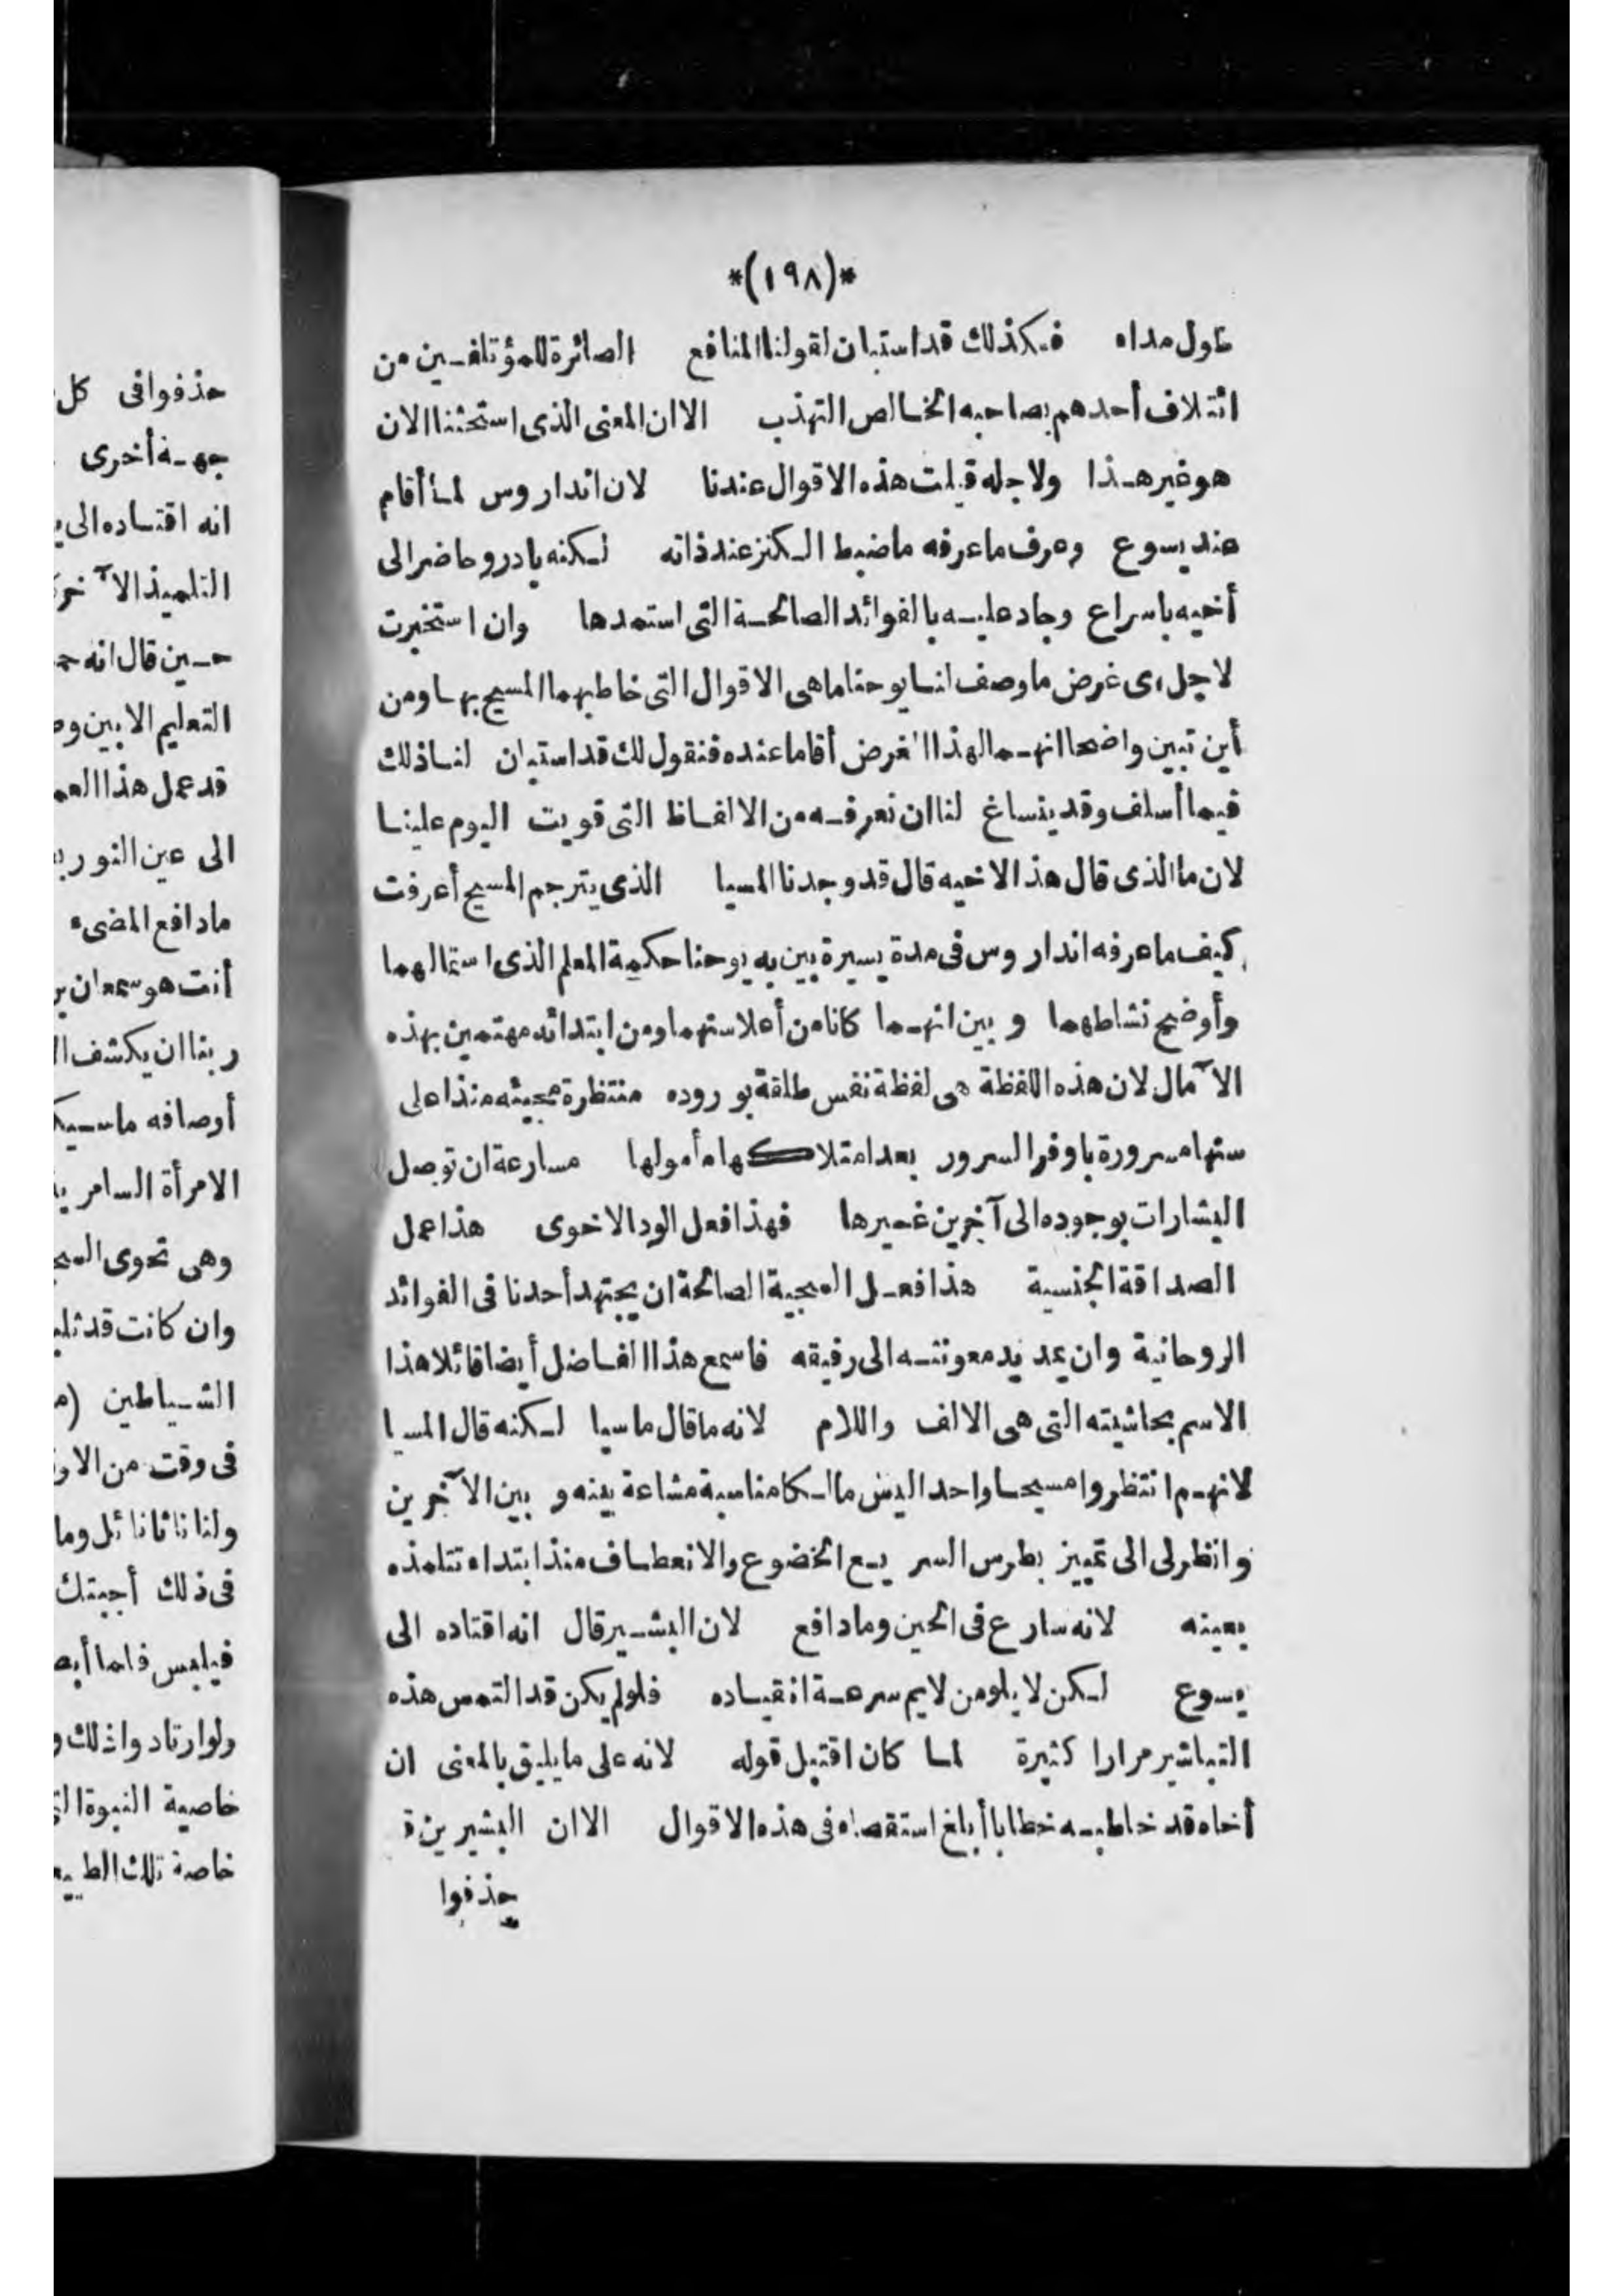 *(١٩٨)*
طول مداه فكذلك قد استبان لقولنا المنافع الصائرة للمؤتلفين من
ائتلاف أحدهم بصاحبه الخالص التهذب الا ان المعنى الذى استحثنا الان
هو غير هذا ولاجله قيلت هذه الاقوال عندنا لان انداروس لما أقام
عند يسوع وعرف ما عرفه ما ضبط الكنز عند ذاته لكنه بادر وحاضر الى
أخيه باسراع وجاد عليه بالفوائد الصالحة التى استمدها وان استخبرت
لاجل اى غرض ما وصف لنا يوحنا ما هى الاقوال التى خاطبهما المسيح بها ومن
أين تبين واضحا انهما لهذا الغرض أقاما عنده فنقول لك قد استبان لنا ذلك
فيما أسلف وقد ينساغ لنا ان نعرفه من الالفاظ التى قويت اليوم علينا
لان ما الذى قال هذا لاخيه قال قد وجدنا المسيا الذى يترجم المسيح أعرفت
كيف ما عرفه انداروس فى مدة يسيرة بين به يوحنا حكمة المعلم الذى استمالهما
وأوضح نشاطهما وبين انهما كانا من أعلا سنهما ومن ابتدائه مهتمين بهذه
الآمال لان هذه اللفظة هى لفظة نفس طلقة بوروده منتظرة مجيئه منذ اعلى
سنها مسرورة باوفر السرور بعد امتلاكها مأمولها مسارعة ان توصل
البشارات بوجوده الى آخرين غيرها فهذا فعل الود الاخوى هذا عمل
الصداقة الجنسية هذا فعل السجية الصالحة ان يجتهد أحدنا فى الفوائد
الروحانية وان يمد يد معونته الى رفيقه فاسمع هذا الفاضل أيضا قائلا هذا
الاسم بحاشيته التى هى الالف واللام لانه ما قال ماسيا لكنه قال المسيا
لانهم انتظروا مسيحا واحدا ليس مالكا مناسبة مشاعة بينه وبين الآخرين
وانظر لى الى تمييز بطرس السريع الخضوع والانعطاف منذ ابتداء تتلمذه
بعينه لانه سارع فى الحين وما دافع لان البشير قال انه اقتاده الى
يسوع لكن لا يلومن لايم سرعة انقياده فلو لم يكن قد التمس هذه
التباشير مرارا كثيرة لما كان اقتبل قوله لانه على ما يليق بالمعنى ان
أخاه قد خاطبه خطابا أبلغ استقصاء فى هذه الاقوال الا ان البشيرين قد
حذفوا
حذفوا فى كل
جهة أخرى
انه اقتاده الى
التلميذ الآخر
حين قال انه
التعليم الابين
قد عمل هذا
الى عين النور
ما دافع المضىء
أنت هو سمعان
ربنا ان يكشف
أوصافه
الامرأة السامرية
وهى تحوى
وان كانت قد
الشياطين
فى وقت من
ولنا ناثانائل وما
فى ذلك أجبتك
فيلبس فلما
ولو ارتادوا ذلك
خاصية النبوة
خاصة تلك